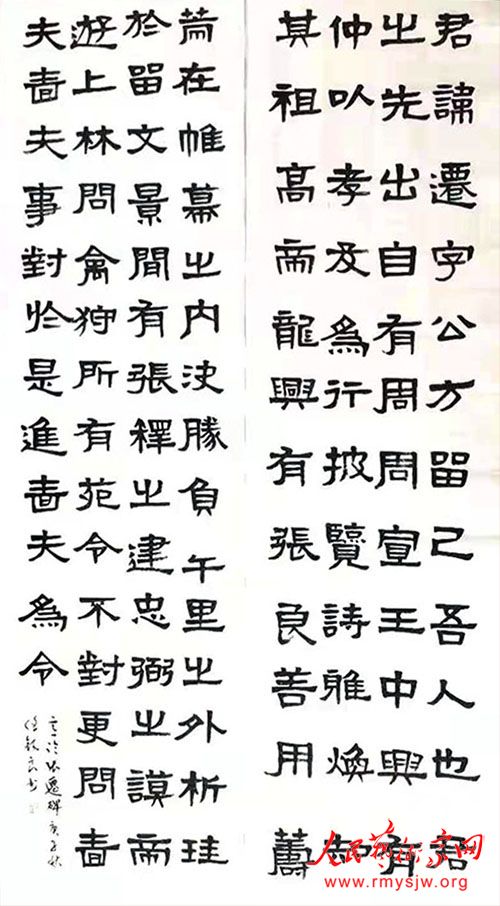 君諱遷字公方留己吾人也君
之先出自有周周宣王中興有
仲以孝友為行披覽詩雅煥知
其祖高帝龍興有張良善用籌
筴在帷幕之內決勝負午里之外析珪
於留文景間有張釋之建忠弼之謨帝
遊上林問禽狩所有苑令不對更問嗇
夫嗇夫事對於是進嗇夫為令
遷碑庚子秋
人民艺术家网
www.rmysjw.org